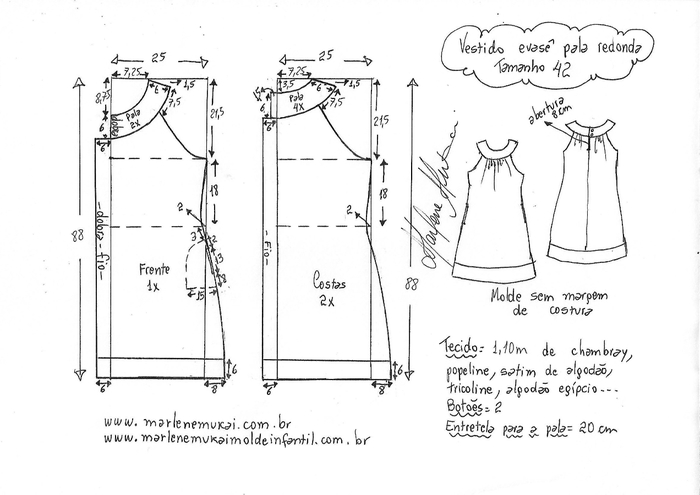 Vestido evasê pala redonda
Tamanho 42
25
7,25
1,5
9
8,75
6
dobra
Pala
2x
7,5
21,5
6
18
88
-dobra-fio-
2
3
2
13
Frente
1x
15
6
6
8
25
7,25
3,5
1,5
9
6
Pala
4x
7,5
21,5
6
18
88
-Fio-
2
Costas
2x
6
6
8
abertura
8cm
Marlene Mukai
Molde sem margem
de costura
Tecido= 1,10m de chambray,
popeline, satim de algodão,
tricoline, algodão egípcio...
Botões= 2
Entretela para a pala= 20 cm
www.marlenemukai.com.br
www.marlenemukaimoldeinfantil.com.br